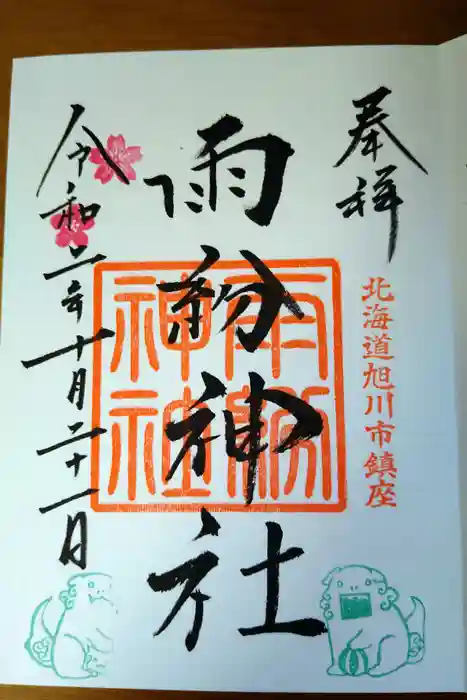 奉拝
北海道旭川市鎮座
雨紛神社
雨紛神社
令和二年十月二十一日